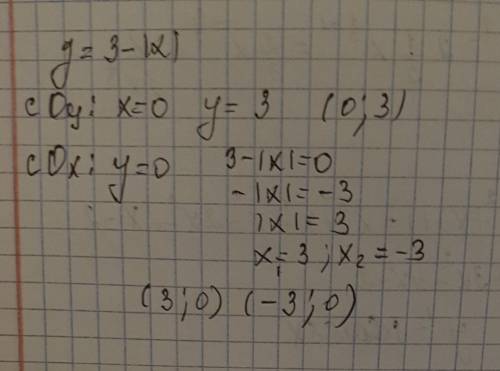 y = 3 - |x|
с Oy: x=0 y = 3 (0; 3)
с Ox: y=0 3-|x|=0
-|x|= -3
|x|= 3
x₁=3; x₂ = -3
(3; 0) (-3; 0)